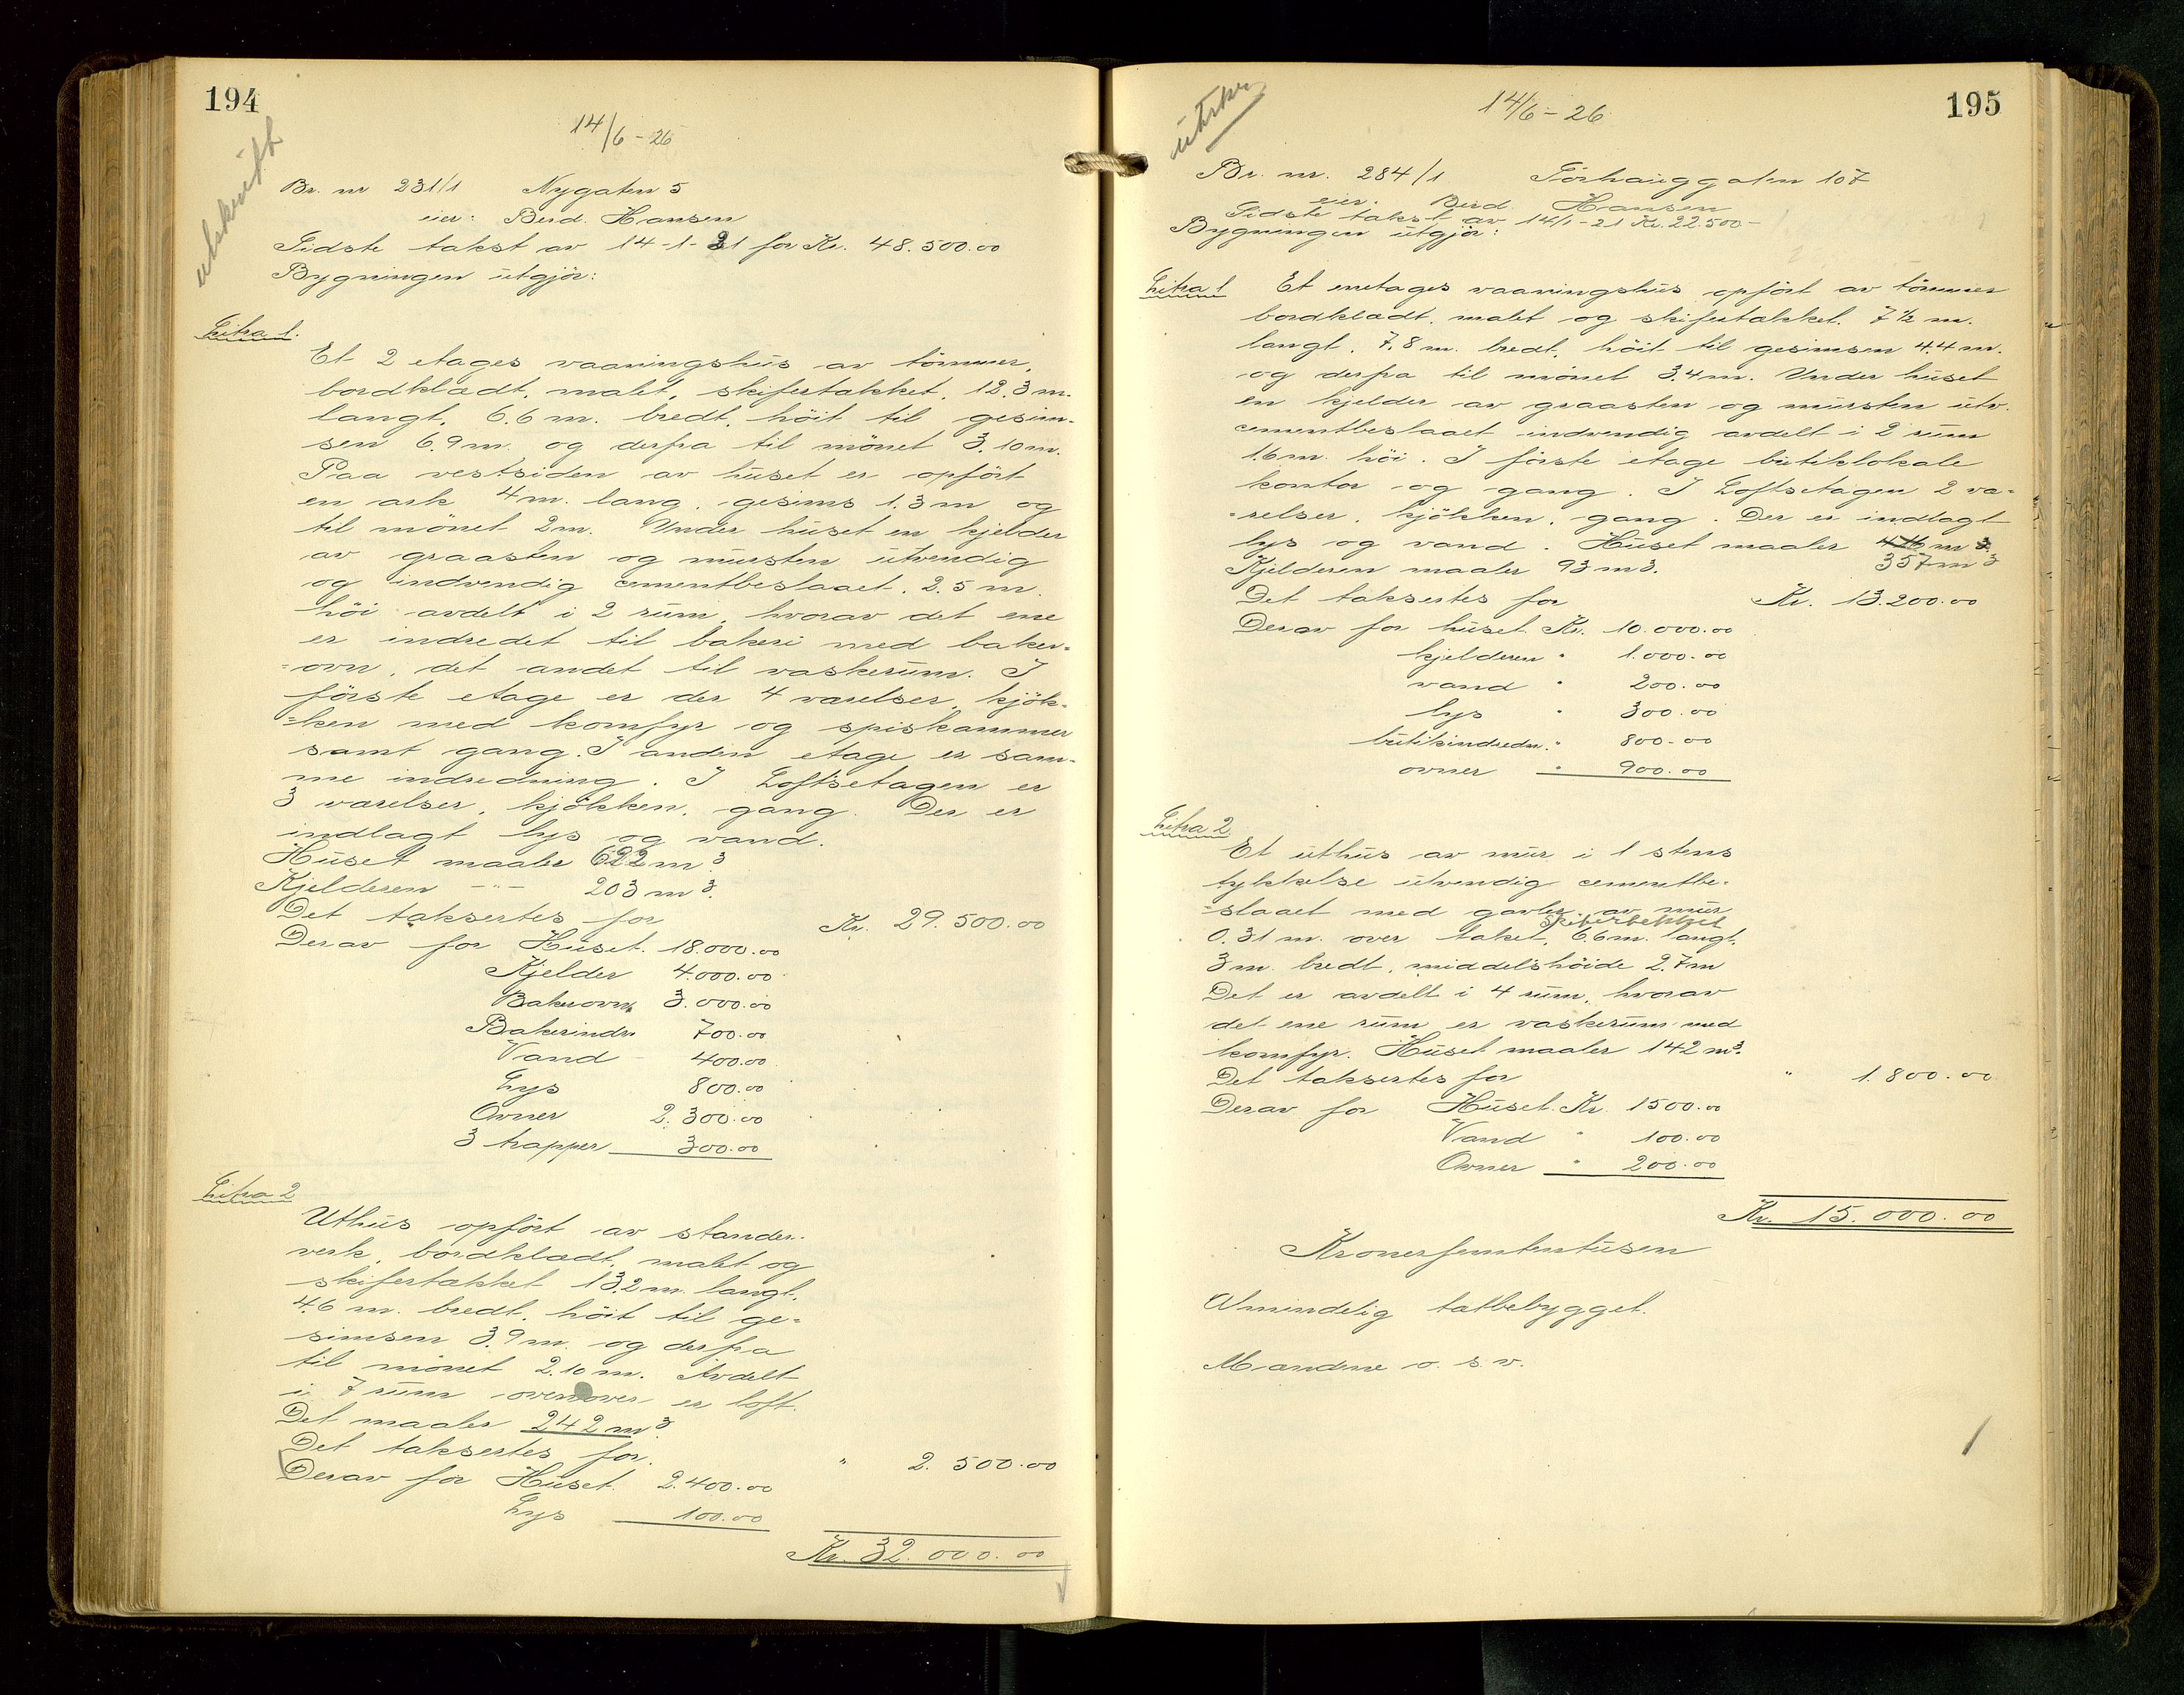 194
14/6 - 26
utskrift
Br. nr 231/1 Nygaten 5
eier: Berd. Hansen
Sidste takst av 14-1-21 for Kr. 48.500.00
Bygningen utgjør:
Litra 1.
Et 2 etages vaaningshus av tömmer,
bordklædt, malt, skifertækket, 12.3 m.
langt, 6.6 m. bredt, höit til gesim-
sen 6.9 m. og derfra til mönet 3.10 m.
Paa vestsiden av huset er opfört
en ark 4 m. lang, gesims 1.3 m og
til mönet 2 m. Under huset en kjelder
av graasten og mursten utvendig
og indvendig cementbeslaaet, 2.5 m.
höi avdelt i 2 rum, hvorav det ene
er indredet til bakeri med baker-
=ovn, det andet til vaskerum. I
förste etage er der 4 værelser, kjök-
=ken med komfyr og spiskammer
samt gang. I anden etage er sam-
me indredning. I Loftsetagen er
3 værelser, kjökken, gang. Der er
indlagt lys og vand.
Huset maaler 622 m3.
Kjelderen -"- 203 m3.
Det taksertes for Kr. 29.500.00
Derav for Huset 18.000.00
Kjelder 4.000.00
Bakerovn 3.000.00
Bakerindr. 700.00
Vand - 400.00
Lys 800.00
Ovner 2.300.00
3 trapper 300.00
Litra 2
Uthus opfört av stander-
verk, bordklædt, malt og
skifertækket 13.2 m. langt,
4.6 m. bredt, höit til ge-
simsen 3.9 m. og derfra
til mönet 2.10 m. Avdelt
i 7 rum ovenover er loft.
Det maaler 242 m3.
Det taksertes for. " 2.500.00
Derav for Huset 2.400.00
Lys 100.00
Kr. 32.000.00
195
14/6 - 26
utskr
Br. nr. 284/1 Törhauggaten 107
eier. Berd. Hansen
Sidste takst av 14/1-21 Kr. 22.500-
Bygningen utgjör:
Litra 1 Et enetages vaaningshus opfört av tömmer
bordklædt, malt og skifertækket. 7 1/2 m.
langt, 7.8 m. bredt, höit til gesimsen 4.4 m.
og derfra til mönet 3.4 m. Under huset
en kjelder av graasten og mursten utv.
cementbeslaaet indvendig avdelt i 2 rum
1.6 m. höi. I förste etage butiklokale
kontor og gang. I Loftsetagen 2 væ-
=relser, kjökken, gang. Der er indlagt
lys og vand. Huset maaler 416 m 3
Kjelderen maaler 93 m3. 357 m 3
Det taksertes for Kr. 13.200.00
Derav for huset Kr. 10.000.00
kjelderen " 1.000.00
vand " 200.00
lys " 300.00
butikindredn. " 800.00
ovner " 900.00
Litra 2.
Et uthus av mur i 1 stens
tykkelse utvendig cementbe-
=slaaet med gavler av mur
skifertækket
0.31 m. over taket, 6.6 m. langt,
3 m. bredt, middelshöide 2.7 m
Det er avdelt i 4 rum, hvorav
det ene rum er vaskerum med
komfyr. Huset maaler 142 m3.
Det taksertes for " 1.800.00
Derav for Huset Kr. 1500.00
Vand " 100.00
Ovner " 200.00
Kr. 15.000.00
Kronerfemtentusen
Almindelig tætbebygget.
Mændne o. s. v.